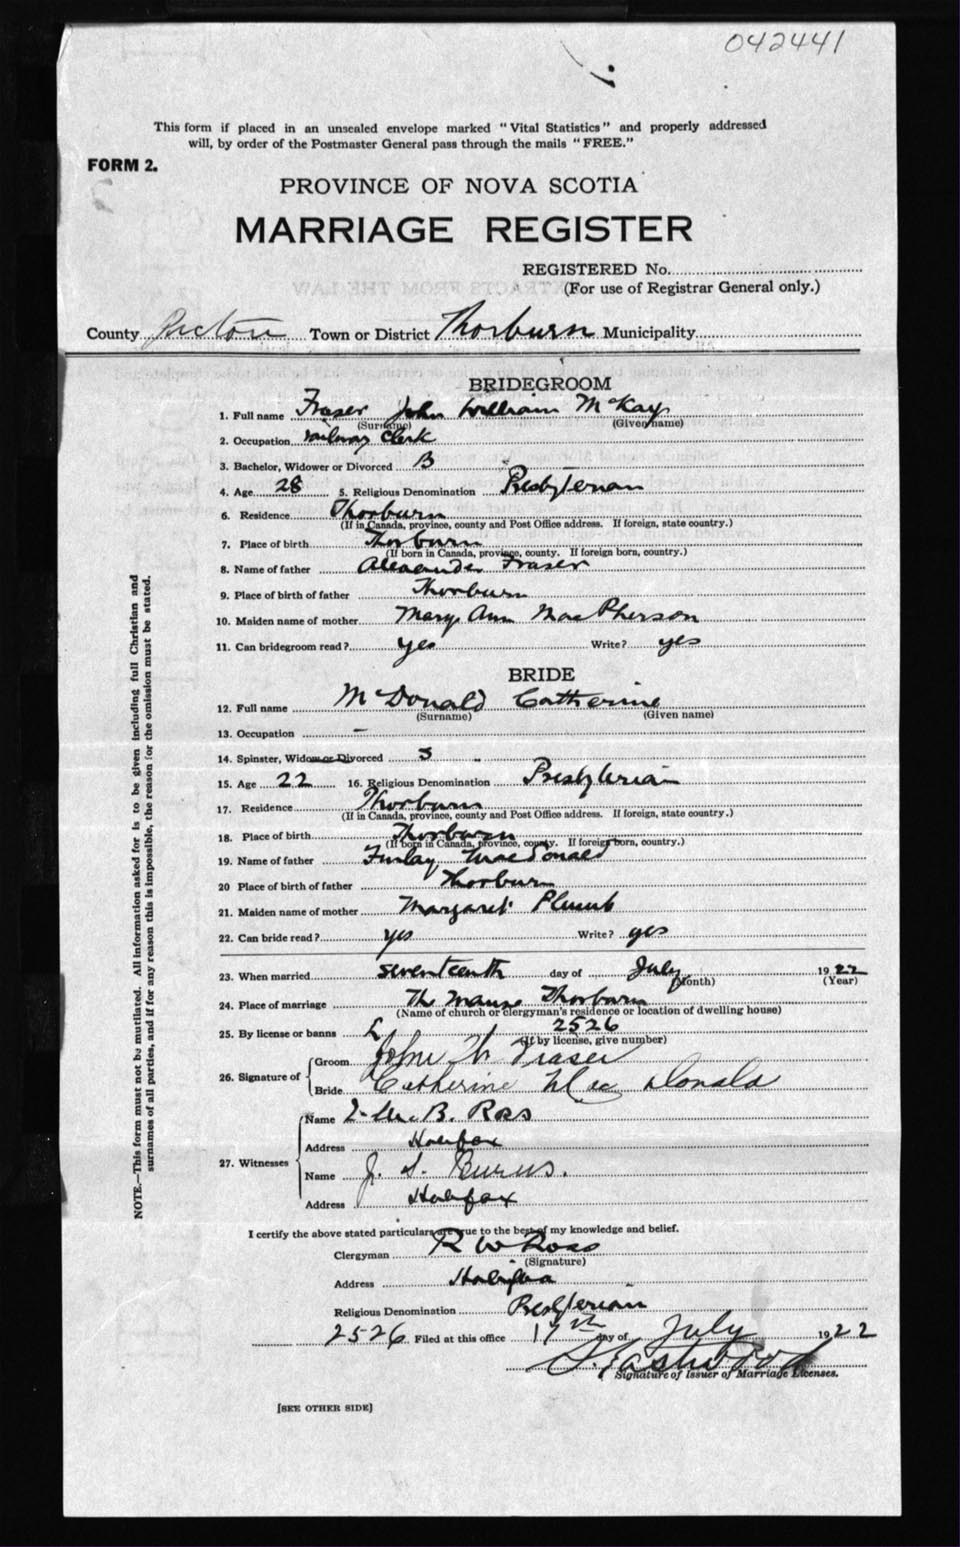 042441
This form if placed in an unsealed envelope marked "Vital Statistics" and properly addressed
will, by order of the Postmaster General pass through the mails "FREE."
FORM 2.
PROVINCE OF NOVA SCOTIA
MARRIAGE REGISTER
REGISTERED No.
(For use of Registrar General only.)
County Pictou Town or District Thorburn Municipality
BRIDEGROOM
1. Full name Fraser John William McKay
(Surname) (Given name)
2. Occupation railway clerk
3. Bachelor, Widower or Divorced B
4. Age 28 5. Religious Denomination Presbyterian
6. Residence Thorburn
(If in Canada, province, county and Post Office address. If foreign, state country.)
7. Place of birth Thorburn
(If born in Canada, province, county. If foreign born, country.)
8. Name of father Alexander Fraser
9. Place of birth of father Thorburn
10. Maiden name of mother Mary Ann MacPherson
11. Can bridegroom read? yes Write? yes
BRIDE
12. Full name McDonald Catherine
(Surname) (Given name)
13. Occupation –
14. Spinster, Widow or Divorced S
15. Age 22 16. Religious Denomination Presbyterian
17. Residence Thorburn
(If in Canada, province, county and Post Office address. If foreign, state country.)
18. Place of birth Thorburn
(If born in Canada, province, county. If foreign born, country.)
19. Name of father Finlay MacDonald
20 Place of birth of father Thorburn
21. Maiden name of mother Margaret Plumb
22. Can bride read? yes Write? yes
23. When married seventeenth day of July 1922
(Month) (Year)
24. Place of marriage The Manse Thorburn
(Name of church or clergyman's residence or location of dwelling house)
25. By license or banns L 2526
(If by license, give number)
26. Signature of
Groom John W Fraser
Bride Catherine MacDonald
27. Witnesses
Name B. Ross
Address Halifax
Name J. S. Burns.
Address Halifax
I certify the above stated particulars are true to the best of my knowledge and belief.
Clergyman R W Ross
(Signature)
Address Halifax
Religious Denomination Presbyterian
2526 Filed at this office 17th day of July 1922
S. Eastwood
Signature of Issuer of Marriage Licenses.
[SEE OTHER SIDE]
NOTE.—This form must not be mutilated. All information asked for is to be given including full Christian and
surnames of all parties, and if for any reason this is impossible, the reason for the omission must be stated.